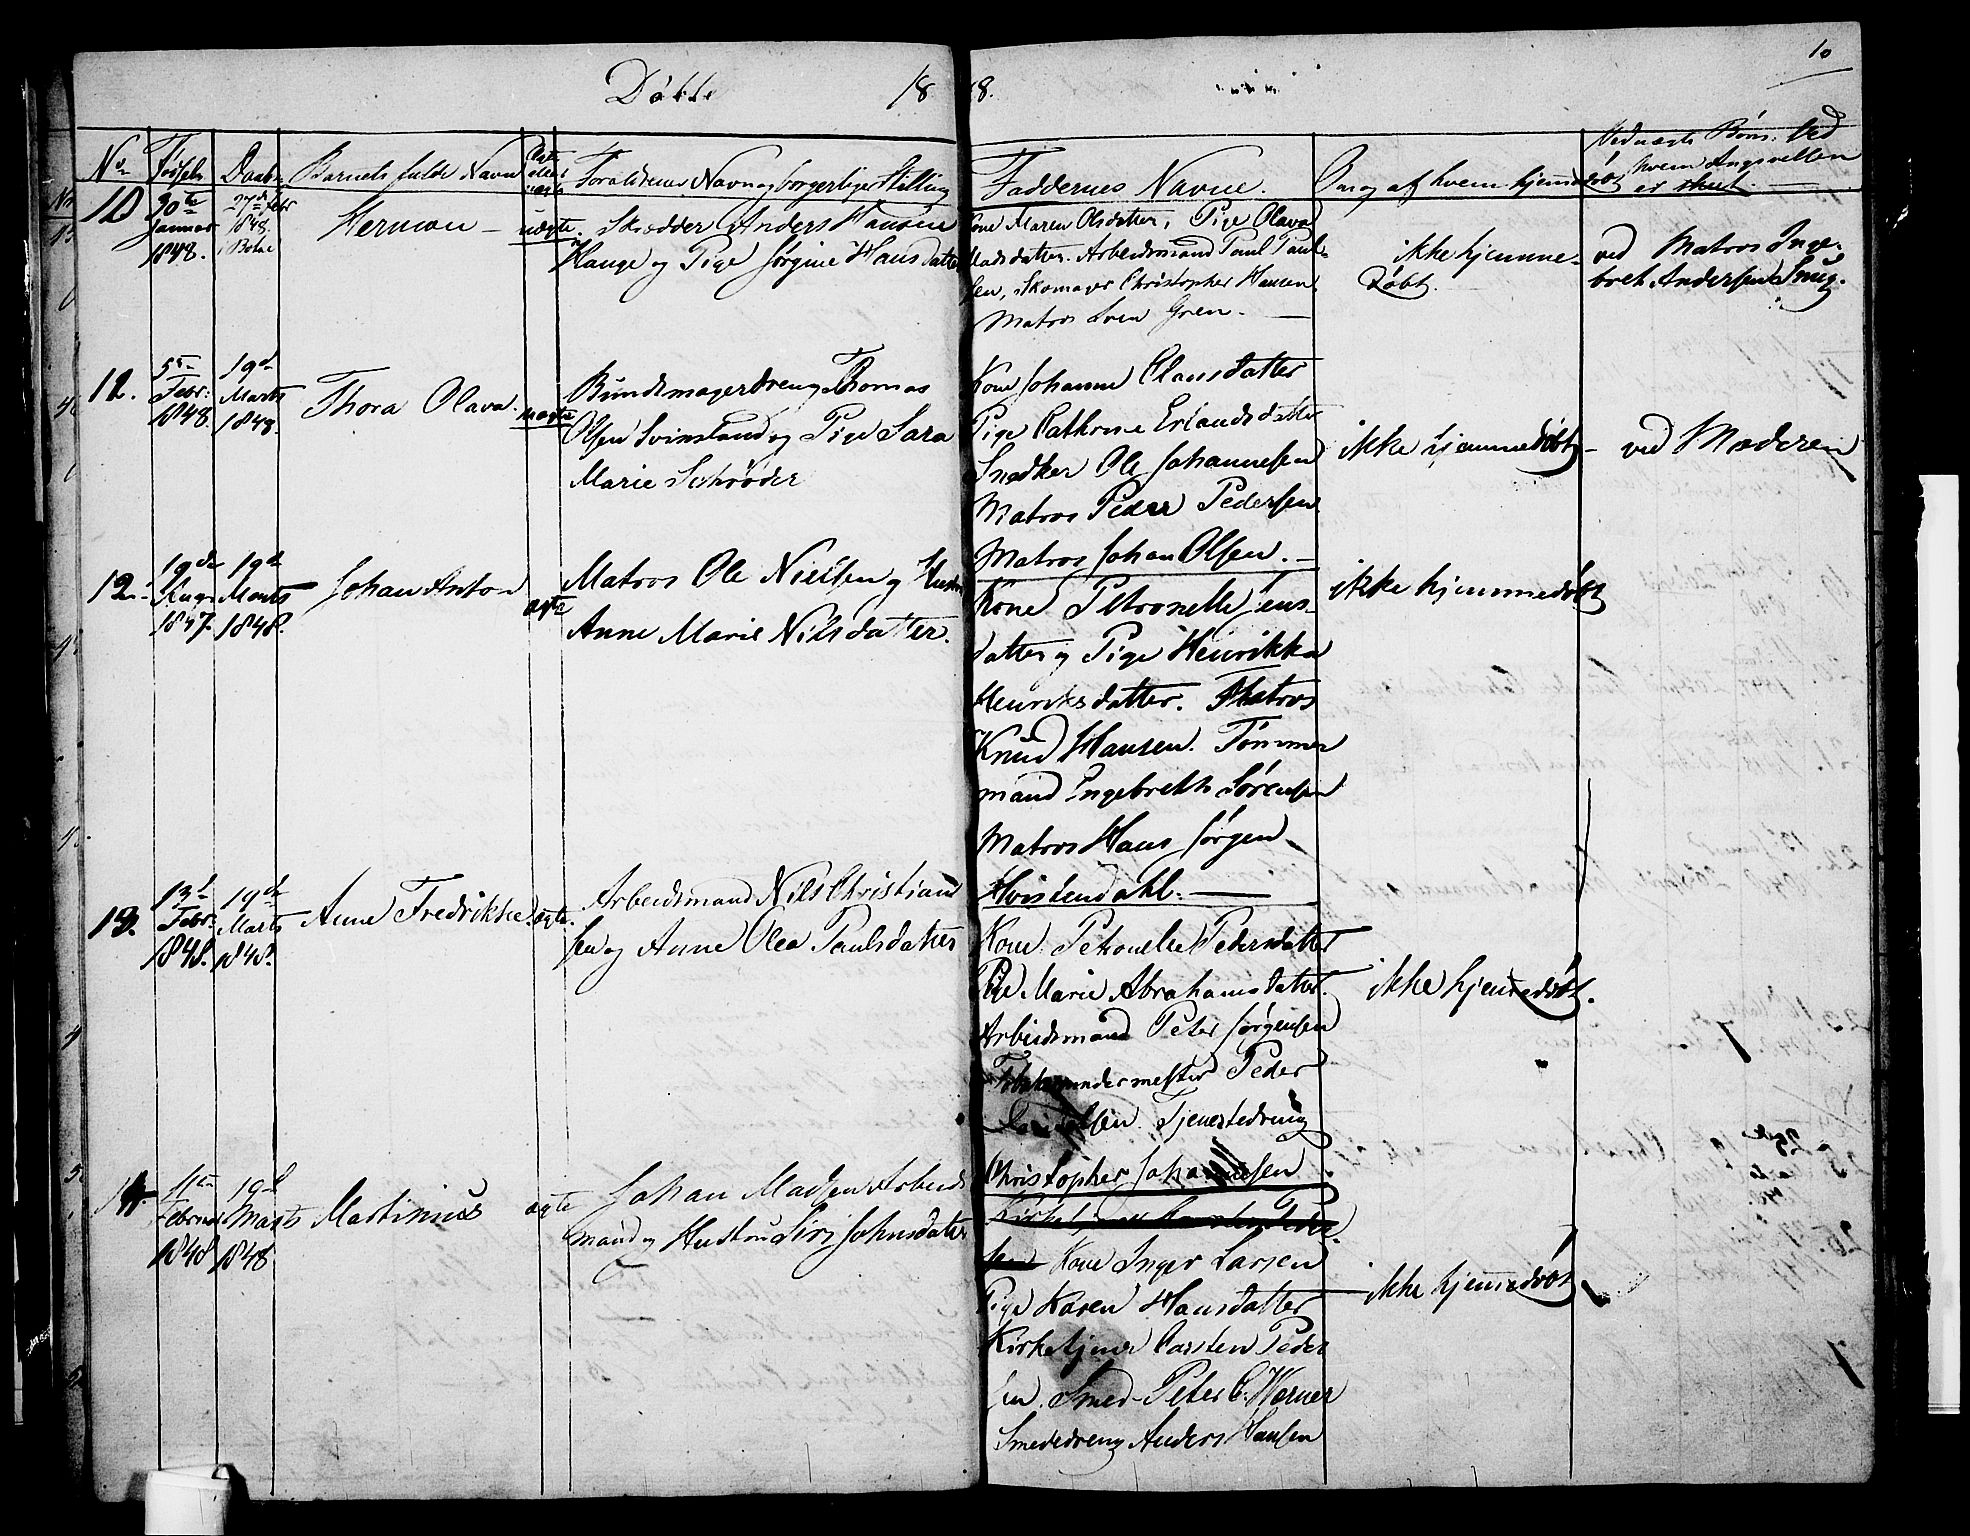 Døbte 1848.
10
No
Fødsels
Daab
Barnets fulde Navn
Ægte
eller
uægte
Forældrenes Navn og borgerlige Stilling
Faddernes Navne.
Om og af hvem hjemmedøbt
Ved uægte Børn: ved
hvem Angivelsen
er skeet.
10
30te
Januar
1848.
27de Febr
1848.
Herman
uægte.
Skrædder Anders Hansen
Hauge og Pige Jørgine Hansdatter
Kone Maren Olsdatter, Pige Olava
Madsdatter. Arbeidsmand Paul Paul-
sen, Skomager Christopher Hansen
Matros Sven Gren.
ikke hjemme-
døbt.
ved Matros Inge-
bret Andersen Snug.
12.
5te
Febr.
1848.
19d
Marts
1848.
Thora Olava.
uægte
Bundtmagerdreng Thomas
Olsen Svinsland og Pige Sara
Marie Schrøder
Kone Johanne Clausdatter
Pige Cathrine Erlandsdatter
Snedker Ole Johannesen
Matros Peder Pedersen
Matros Johan Olsen.
ikke hjemmedøbt
ved Moderen
12.
19de
Aug
1847.
19d
Marts
1848.
Johan Anton
ægte
Matros Ole Nielsen og Hustru
Anne Marie Nilsdatter.
Kone Petronelle Jens-
datter og Pige Henrikka
Henriksdatter. Matros
Knud Hansen. Tømmer
mand Engebreth Sørensen
Matros Hans Jørgen
Hvistendahl.
ikke hjemmedøbt
13.
13d
Febr.
1848.
19de
Marts
1848.
Anne Fredrikke
ægte.
Arbeidsmand Nils Christian
sen og Anne Olea Paulsdatter
Kone Petronelle Pedersdatter
Pige Marie Abrahamsdatter.
Arbeidsmand Peter Jørgensen
Peder
Tjenestedreng
Christopher Johannesen
ikke hjemmedøbt.
14.
11te
Februar
1848
19d
Marts
1848
Martinius
ægte
Johan Madsen Arbeids
mand og Hustru Siri Johnsdatter
Kirketjener Carsten Peder
sen Kone Inger Larsen
Pige Karen Hansdatter
Kirketjener Carsten Peder
sen. Smed Peter C. Werner
Smededreng Anders Hansen
ikke hjemmedøbt